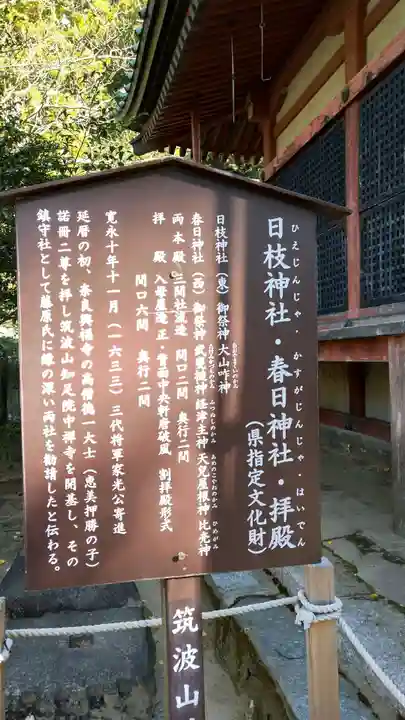 ひえじんじゃ・かすがじんじゃ・はいでん
日枝神社・春日神社・拝殿
(県指定文化財)
日枝神社(東)御祭神 大山咋神
春日神社(西)御祭神 武甕槌神 経津主神 天児屋根神 比売神
ふつぬしのかみ
あめのこやねのかみ
ひめがみ
両本殿 三間社流造 間口二間 奥行二間
拝殿 入母屋造 正・背面中央軒唐破風 割拝殿形式
間口六間 奥行二間
寛永十年十一月(一六三三)三代将軍家光公寄進
延暦の初、奈良興福寺の高僧徳一大士(恵美押勝の子)
諾冊二尊を拝し筑波山知足院中禅寺を開基し、その
鎮守社として藤原氏に縁の深い両社を勧請したと伝わる。
筑波山